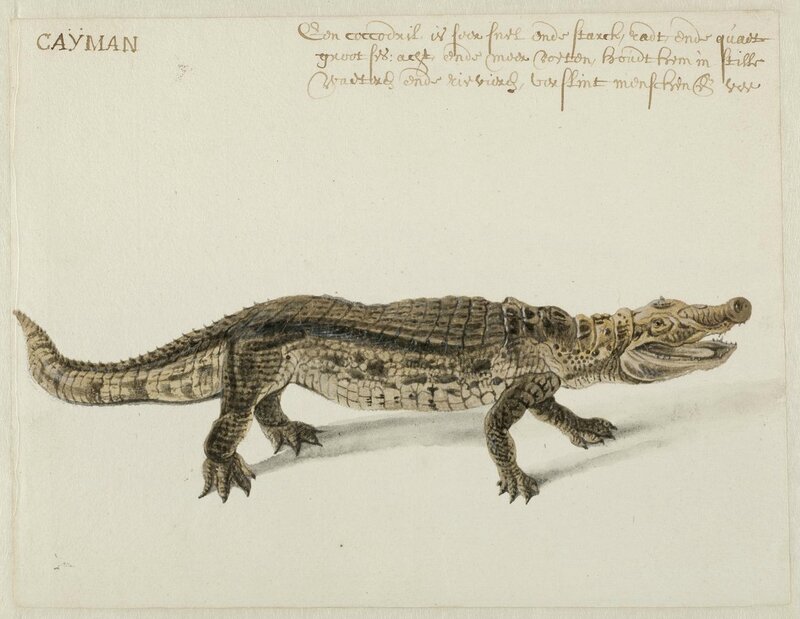 CAŸMAN
Een coccodril is seer snel ende starck, radt ende quaet
groot 6: acht ende meer voeten, houdt hem in stille
waeters ende rieviers, verslint menschen & vee